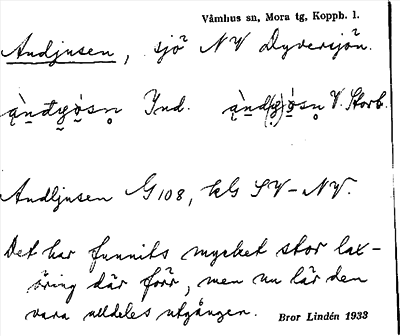 Våmhus sn, Mora tg, Koppb. l.
Andjusen, sjö NV Dyversjön.
Ind. V. Storb.
Andljusen G108, kls SV-NV.
Det har funnits mycket stor lax-
öring där förr, men nu lär den
vara alldeles utgången. Bror Lindén 1933